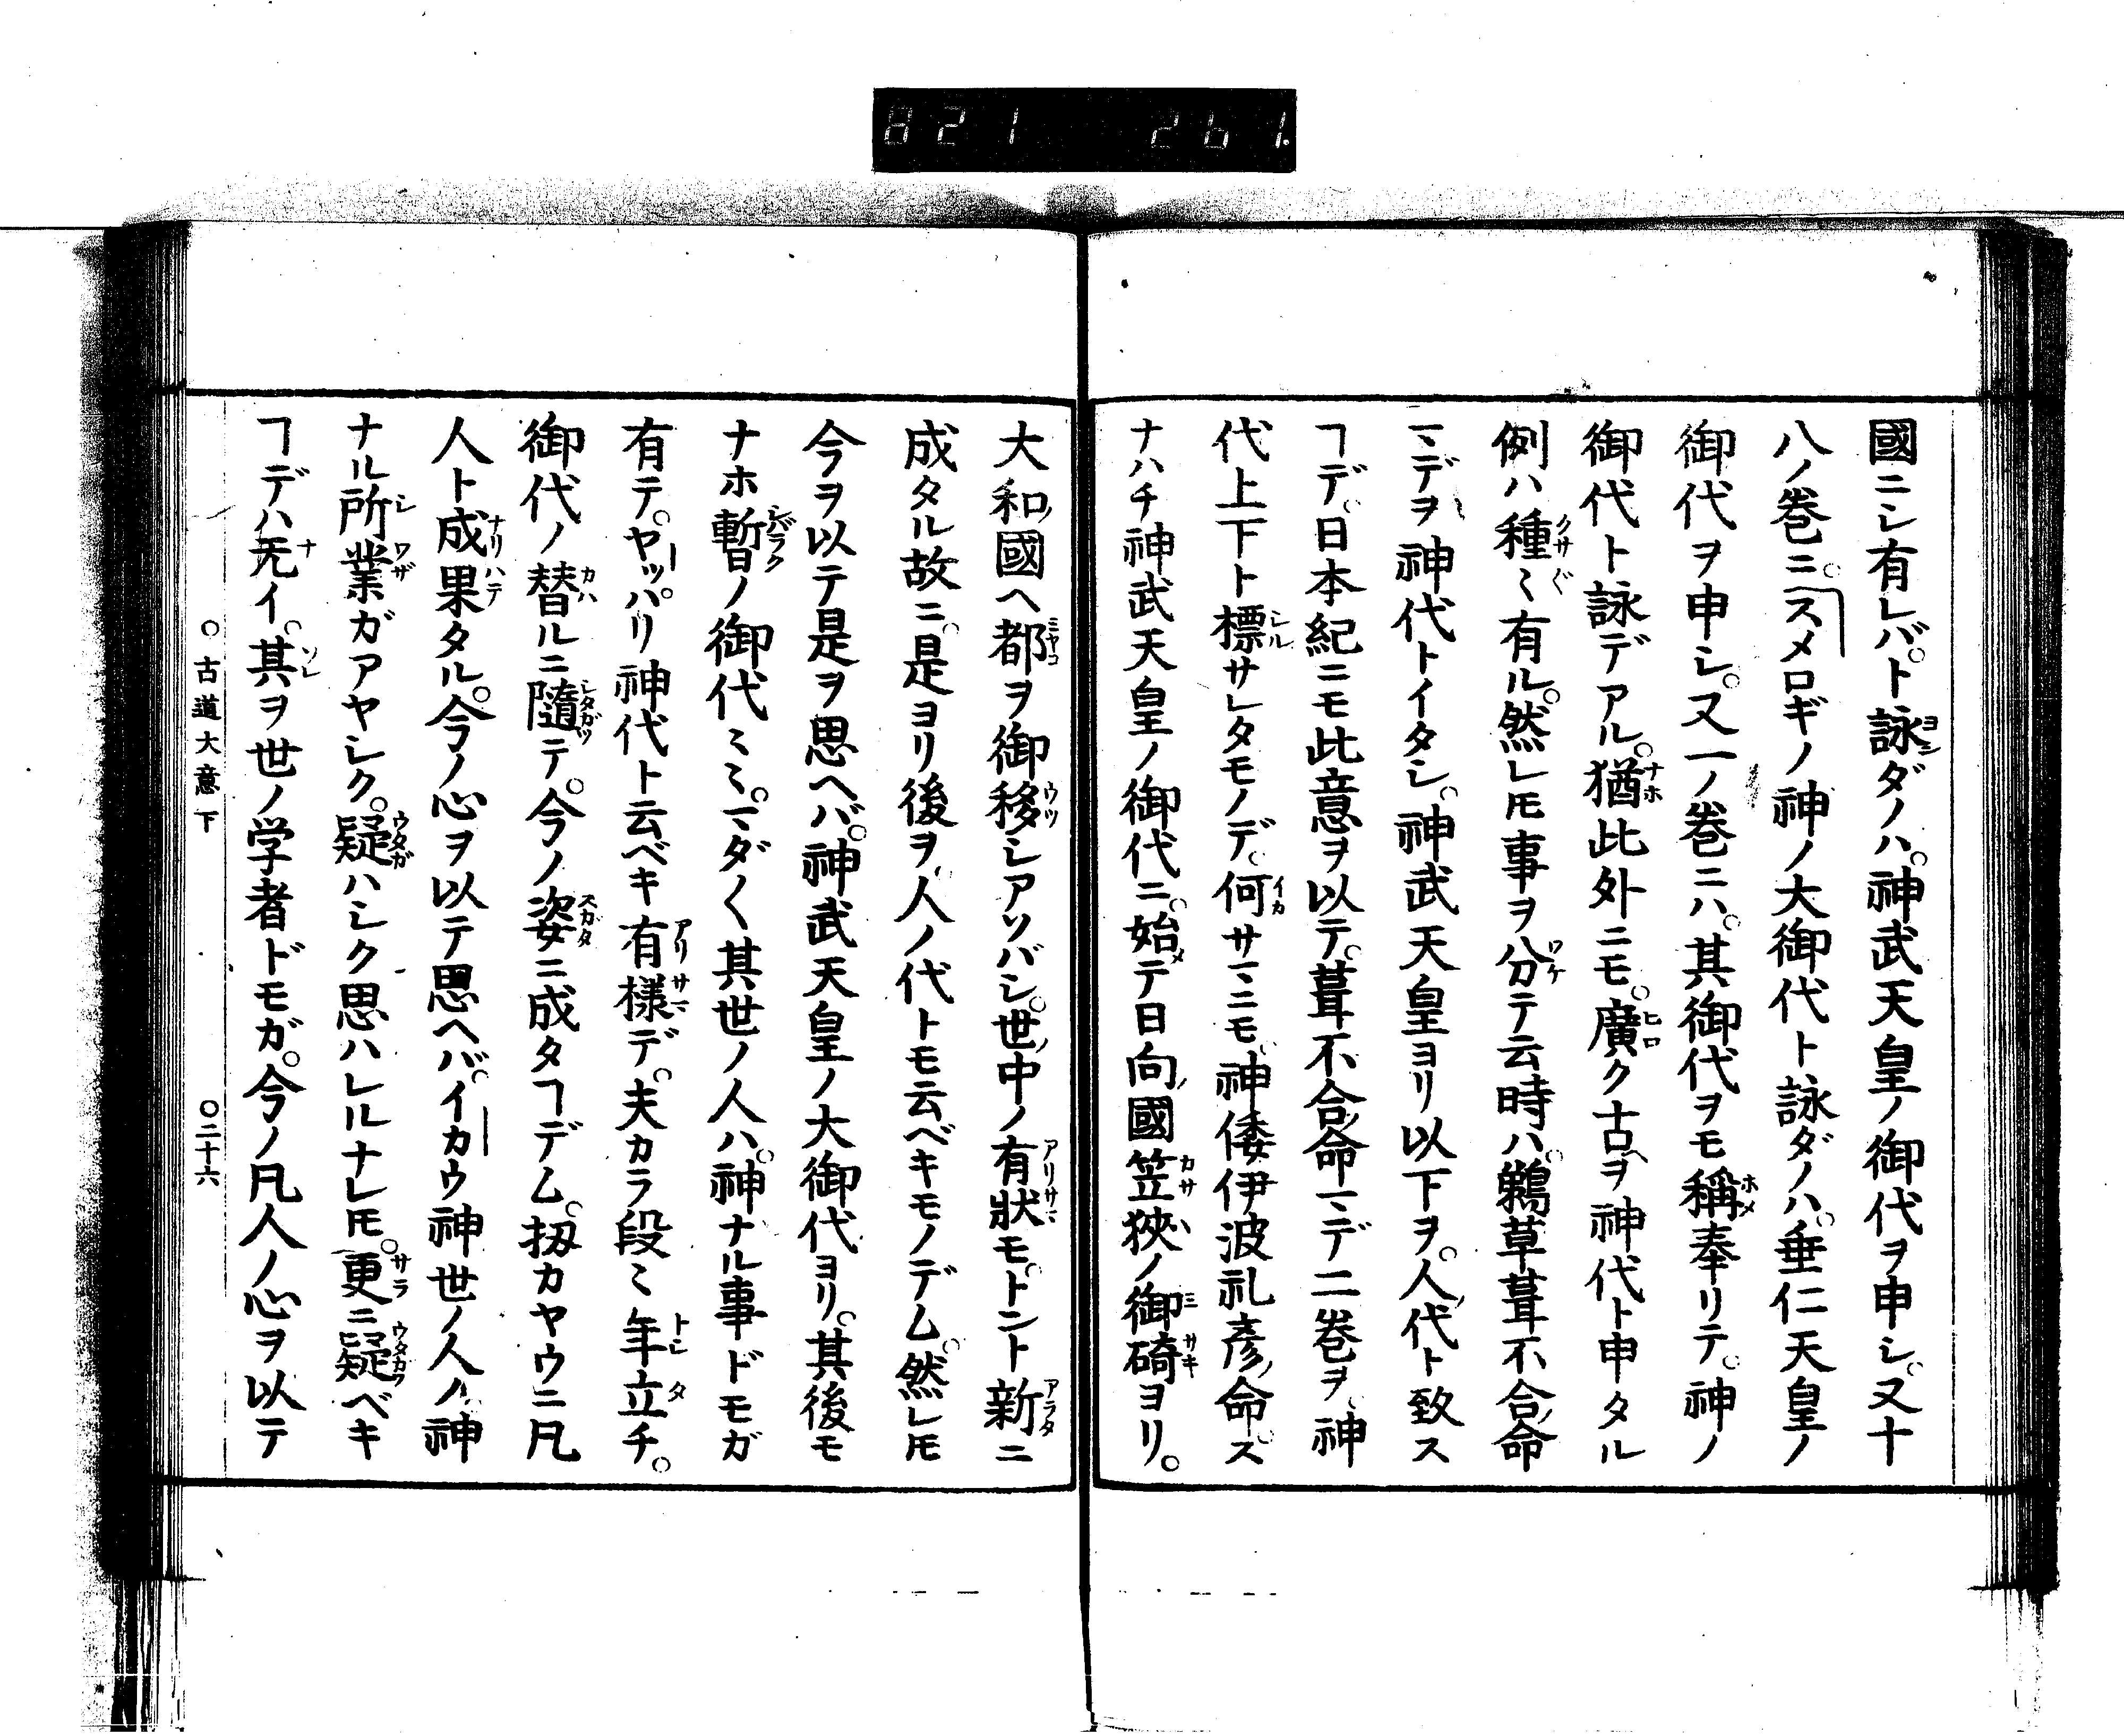 821 261.
國ニシ有レバ。ト詠ダノハ。神武天皇ノ御代ヲ申シ。又十
八ノ巻ニ。スメロギノ神ノ大御代ト詠ダノハ。垂仁天皇ノ
御代ヲ申シ。又一ノ巻ニハ。其御代ヲモ稱奉リテ。神ノ
御代ト詠デアル。猶此外ニモ。廣ク古ヘヲ神代ト申タル
例ハ種〻有ル。然レ𪜈事ヲ分テ云時ハ。鵜草葺不合ノ命
マデヲ神代トイタシ。神武天皇ヨリ以下ヲ。人ノ代ト致ス
ヿデ。日本紀ニモ此意ヲ以テ。葺不合ノ命マデ二巻ヲ、神
代上下ト標サレタモノデ。何サマニモ。神倭伊波礼彦ノ命。ス
ナハチ神武天皇ノ御代ニ。始メテ日向ノ國笠狹ノ御碕ヨリ。
大和ノ國ヘ都ヲ御移シアソバシ。世ノ中ノ有狀モ。トント新ニ
成タル故ニ。是ヨリ後ヲ、人ノ代トモ云ベキモノデム。然レ𪜈
今ヲ以テ是ヲ思ヘバ。神武天皇ノ大御代ヨリ。其後モ
ナホ暫ノ御代〻〻。マダ〱其世ノ人ハ。神ナル事ドモガ
有テ。ヤッパリ神代ト云ベキ有様デ。夫カラ段〻年立チ。
御代ノ替ルニ隨テ。今ノ姿ニ成タヿデム。扨カヤウニ凡
人ト成果タル。今ノ心ヲ以テ思ヘバ。イカウ神世ノ人ハ。神
ナル所業ガアヤシク。疑ハシク思ハレルナレ𪜈。更ニ疑ベキ
ヿデハ无イ。其ヲ世ノ学者ドモガ。今ノ凡人ノ心ヲ以テ
○古道大意下 ○二十六